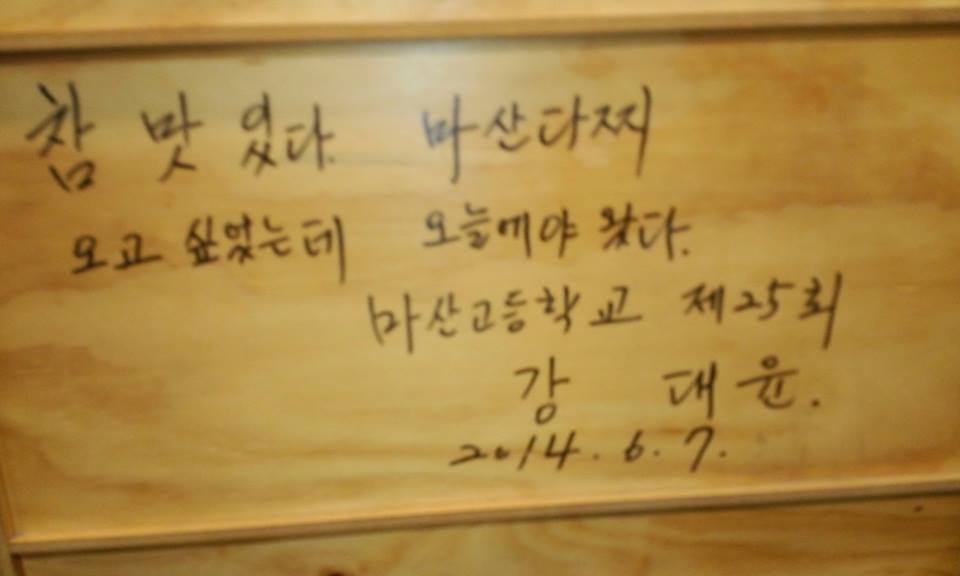 참 맛있다. 마산다찌
오고 싶었는데 오늘에야 왔다.
마산고등학교 제25회
강 대윤.
2014. 6. 7.